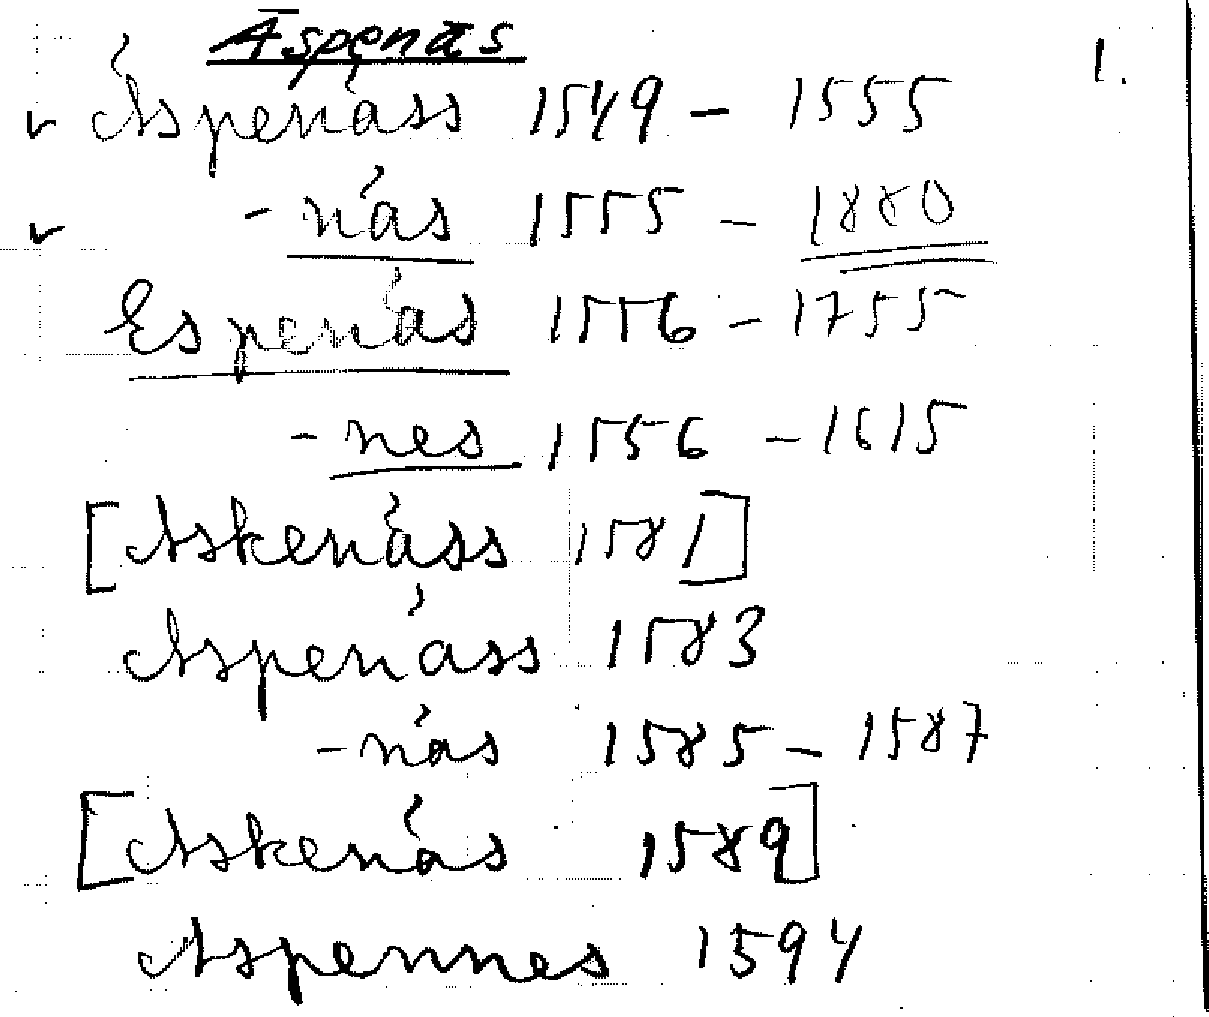 Äspenäs 1.
✓ Äspenäss 1549 – 1555
✓ -näs 1555 – 1880
Espenäs 1556 – 1755
-nes 1556 – 1615
[Askenäss 1581]
Aspenäss 1583
-näs 1585 – 1587
[Askenäs 1589]
Aspennes 1594